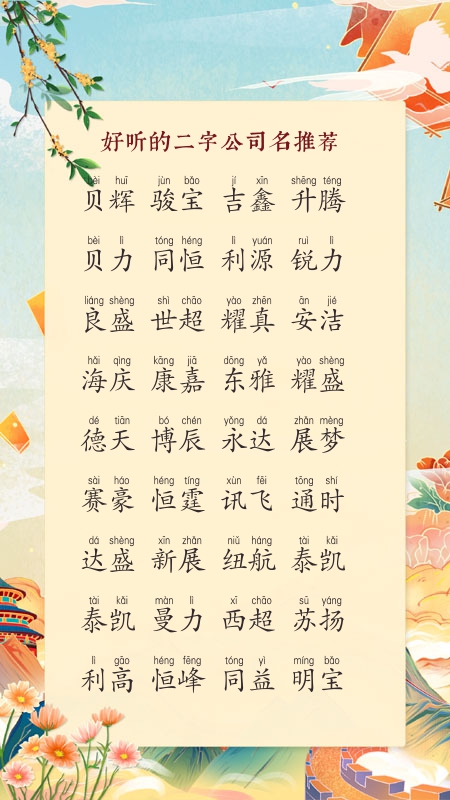 好听的二字公司名推荐
bèi huī jùn bǎo jí xīn shēng téng
贝辉 骏宝 吉鑫 升腾
bèi lì tóng héng lì yuán ruì lì
贝力 同恒 利源 锐力
liáng shèng shì chāo yào zhēn ān jié
良盛 世超 耀真 安洁
hǎi qìng kāng jiā dōng yǎ yào shèng
海庆 康嘉 东雅 耀盛
dé tiān bó chén yǒng dá zhǎn mèng
德天 博辰 永达 展梦
sài háo héng tíng xùn fēi tōng shí
赛豪 恒霆 讯飞 通时
dá shèng xīn zhǎn niǔ háng tài kǎi
达盛 新展 纽航 泰凯
tài kǎi màn lì xī chāo sū yáng
泰凯 曼力 西超 苏扬
lì gāo héng fēng tóng yì míng bǎo
利高 恒峰 同益 明宝